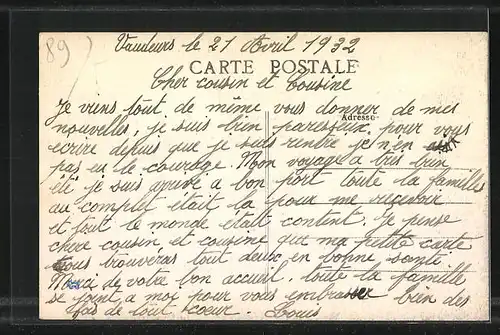 89)
Vaudeurs le 21 Avril 1932
CARTE POSTALE
Cher cousin et Cousine
Je viens tout de même vous donner de mes
Adresse
nouvelles, je suis bien paresseux pour vous
ecrire depuis que je suis rentré je n'en
pas eu le courage. Mon voyage a très bien
été je suis arrivé a bon port toute la familles
au complet était la pour me recevoir
et tout le monde était content. Je pense
chere cousin et cousine que ma petite carte
vous trouveras tout deux en bonne santé.
Merci de votre bon accueil. toute la famille
se joint a moi pour vous embrasser bien des
fois de tout coeur. Louis